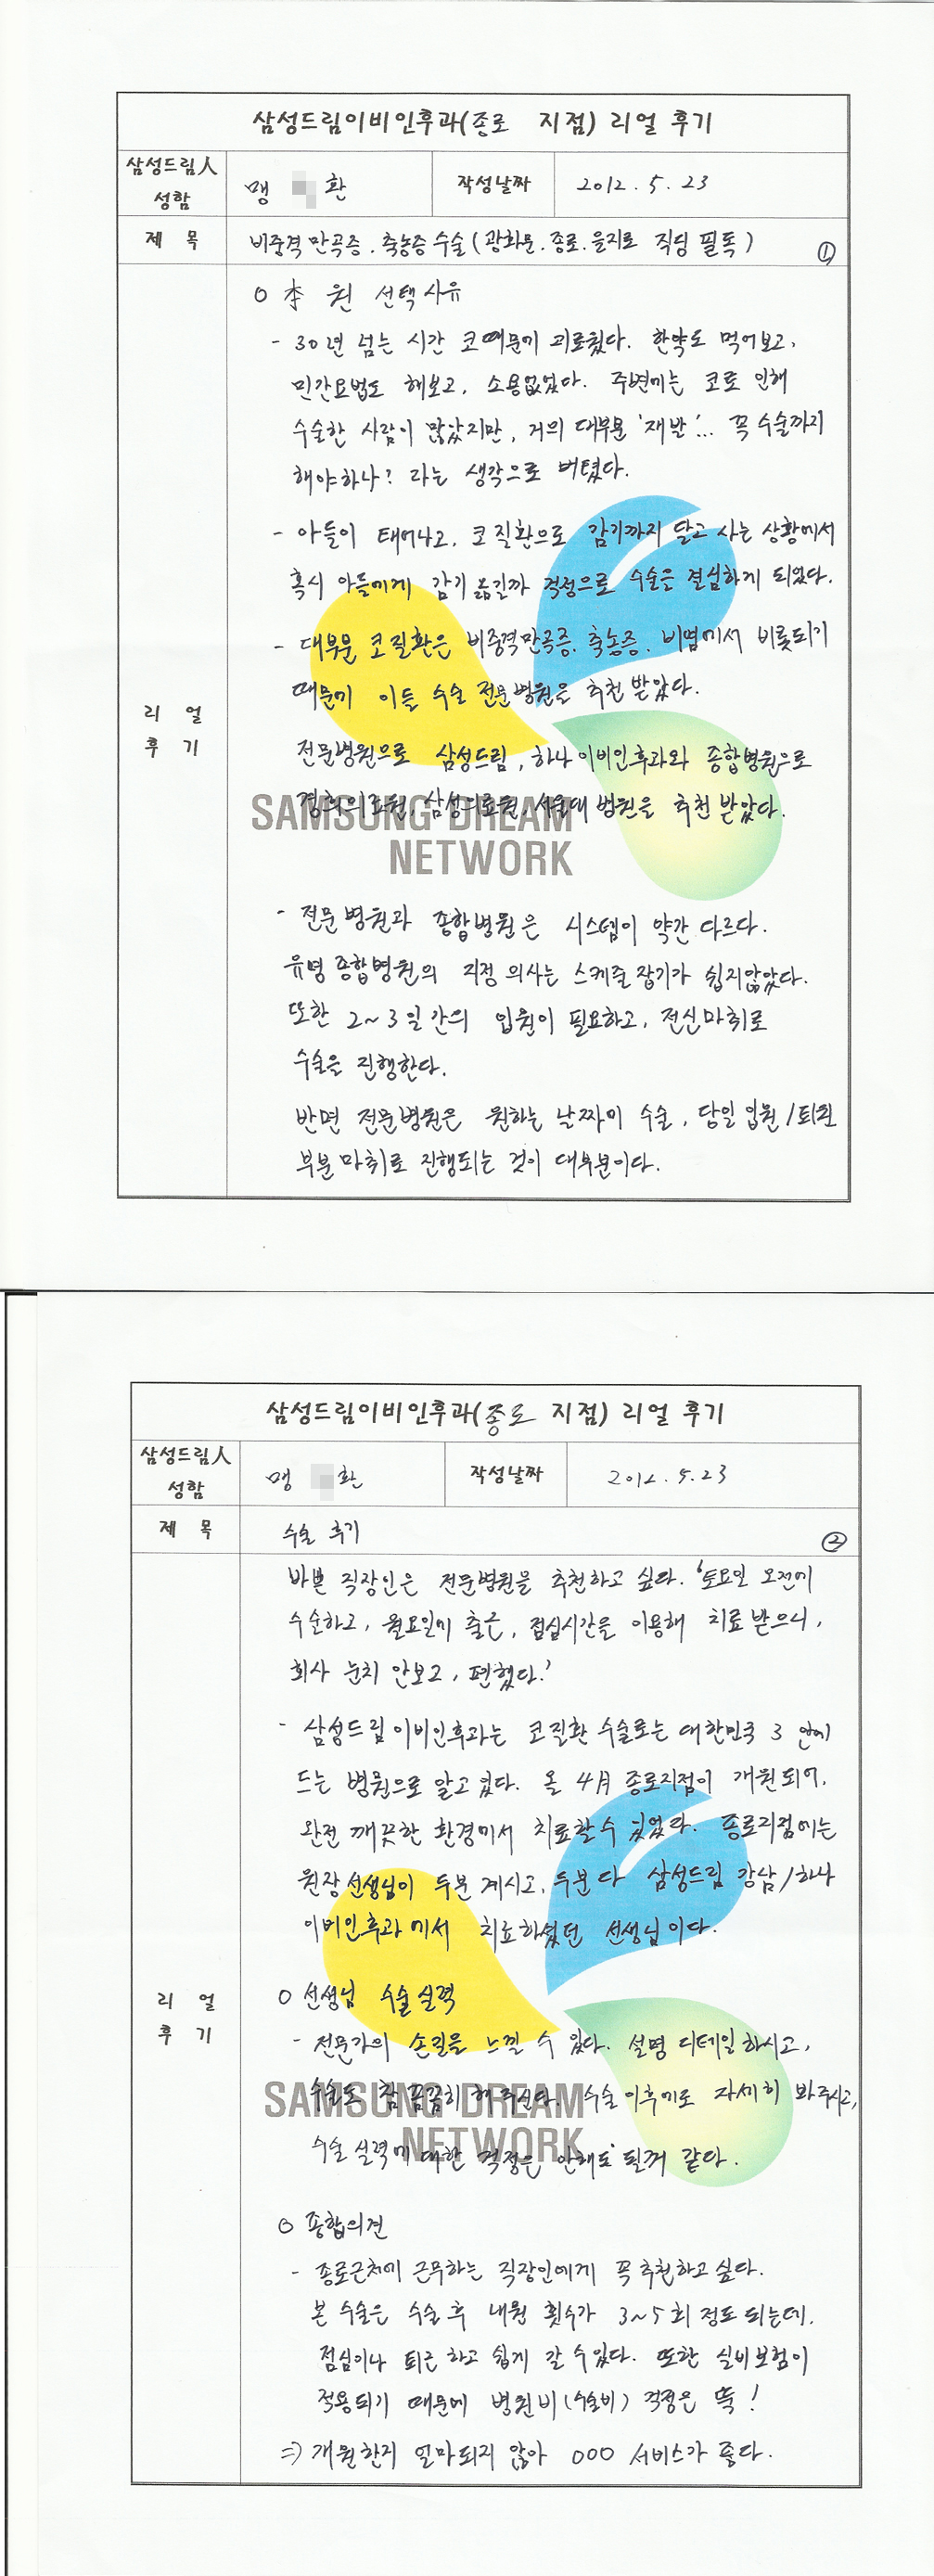 삼성드림이비인후과(종로 지점) 리얼 후기
삼성드림人 성함
맹 환
작성날짜
2012. 5. 23
제 목
비중격만곡증. 축농증 수술 (광화문. 종로. 을지로 직딩 필독)
①
리 얼
후 기
○ 本 원 선택사유
- 30년 넘는 시간 코때문에 괴로웠다. 한약도 먹어보고,
민간요법도 해보고, 소용없었다. 주변에는 코로 인해
수술한 사람이 많았지만, 거의 대부분 '재발'... 꼭 수술까지
해야하나? 라는 생각으로 버텼다.
- 아들이 태어나고, 코질환으로 감기까지 달고 사는 상황에서
혹시 아들에게 감기 옮길까 걱정으로 수술을 결심하게 되었다.
- 대부분 코질환은 비중격만곡증. 축농증. 비염에서 비롯되기
때문에 이들 수술 전문병원을 추천 받았다.
전문병원으로 삼성드림, 하나이비인후과와 종합병원으로
경희의료원, 삼성의료원, 서울대 병원을 추천 받았다.
SAMSUNG DREAM
NETWORK
- 전문병원과 종합병원은 시스템이 약간 다르다.
유명 종합병원의 지정 의사는 스케줄 잡기가 쉽지않았다.
또한 2~3일간의 입원이 필요하고, 전신마취로
수술을 진행한다.
반면 전문병원은 원하는 날짜에 수술, 당일 입원/퇴원
부분마취로 진행되는 것이 대부분이다.
삼성드림이비인후과(종로 지점) 리얼 후기
삼성드림人 성함
맹 환
작성날짜
2012. 5. 23
제 목
수술 후기
②
리 얼
후 기
바쁜 직장인은 전문병원을 추천하고 싶다. '토요일 오전에
수술하고, 월요일에 출근, 점심시간을 이용해 치료받으니,
회사 눈치 안보고, 편했다.'
- 삼성드림이비인후과는 코질환 수술로는 대한민국 3 안에
드는 병원으로 알고있다. 올 4月 종로지점이 개원되어,
완전 깨끗한 환경에서 치료할수 있었다. 종로지점에는
원장선생님이 두분 계시고, 두분 다 삼성드림 강남/하나
이비인후과에서 치료하셨던 선생님이다.
○ 선생님 수술실력
- 전문가의 손길을 느낄 수 있다. 설명 디테일하시고,
수술도 참 꼼꼼히 해주신다. 수술이후에도 자세히 봐주시고,
수술 실력에 대한 걱정은 안해도 될꺼 같다.
SAMSUNG DREAM
NETWORK
○ 종합의견
- 종로근처에 근무하는 직장인에게 꼭 추천하고 싶다.
본 수술은 수술 후 내원 횟수가 3~5회 정도 되는데,
점심이나 퇴근하고 쉽게 갈 수있다. 또한 실비보험이
적용되기 때문에 병원비(수술비) 걱정은 뚝!
⇒ 개원한지 얼마되지 않아 ○○○ 서비스가 좋다.